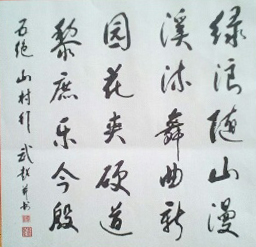 绿浪随山漫
溪流舞曲新
园花爽硬道
黎庶乐今殷
五绝 山村行 武